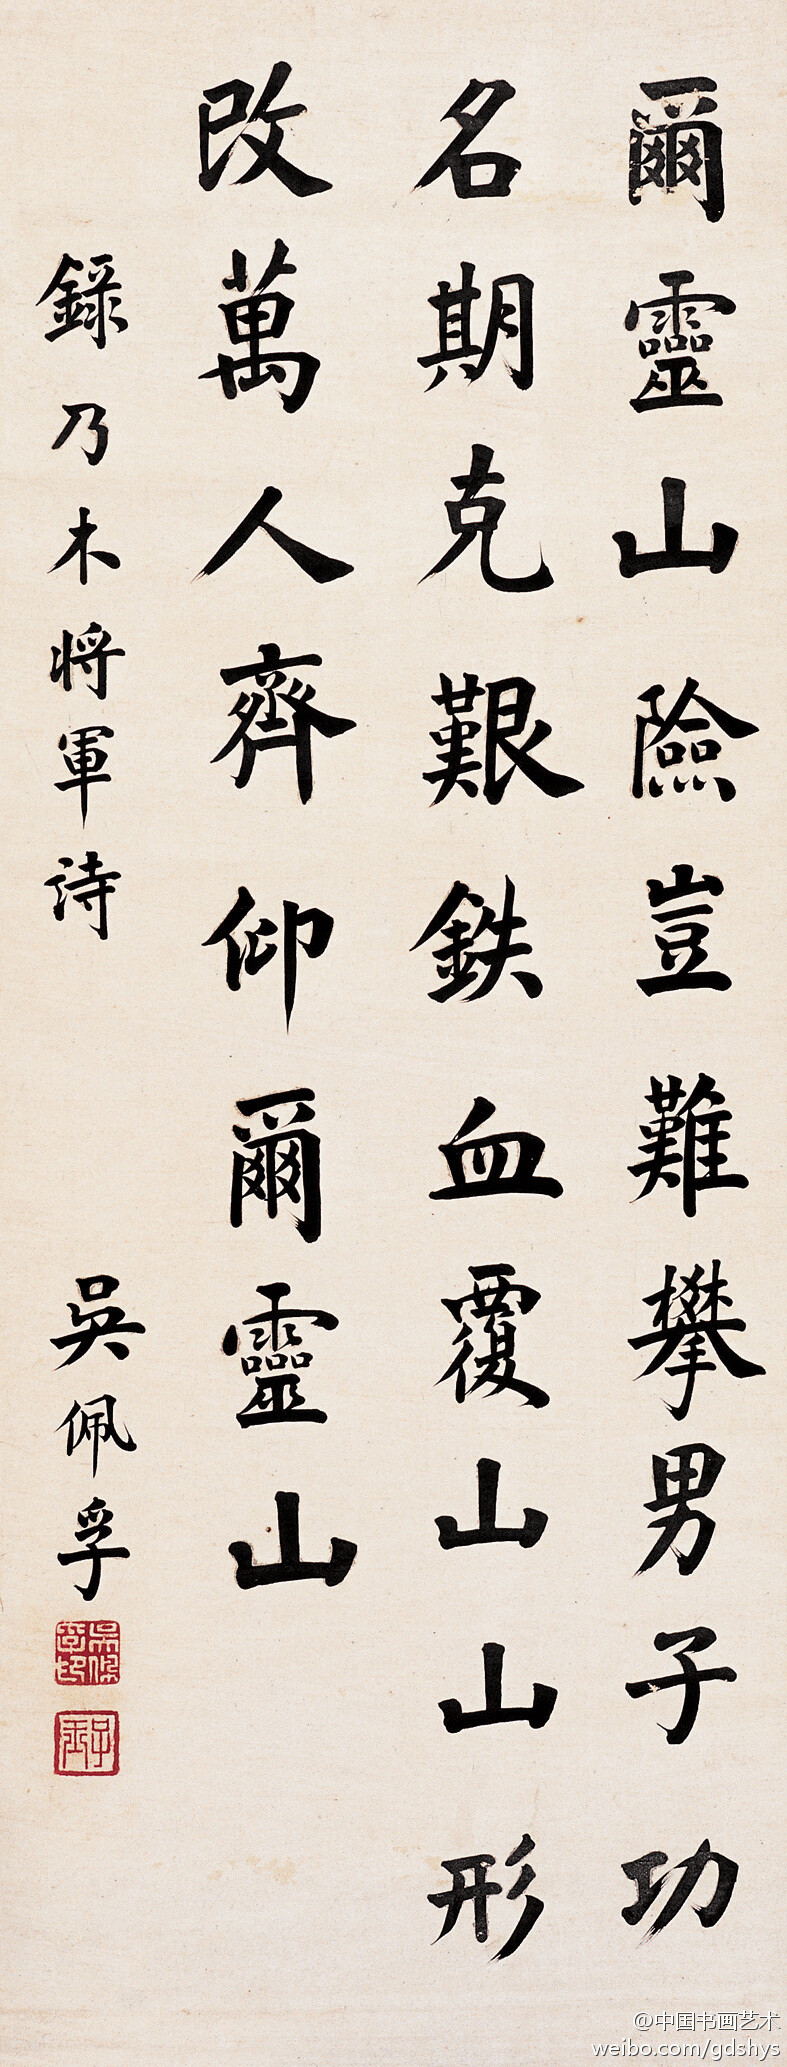 爾靈山險豈難攀男子功
名期克艱鉄血覆山山形
改萬人齊仰爾靈山
錄乃木將軍詩
吳佩孚
吳佩孚印
子玉
@中国书画艺术
weibo.com/gdshys